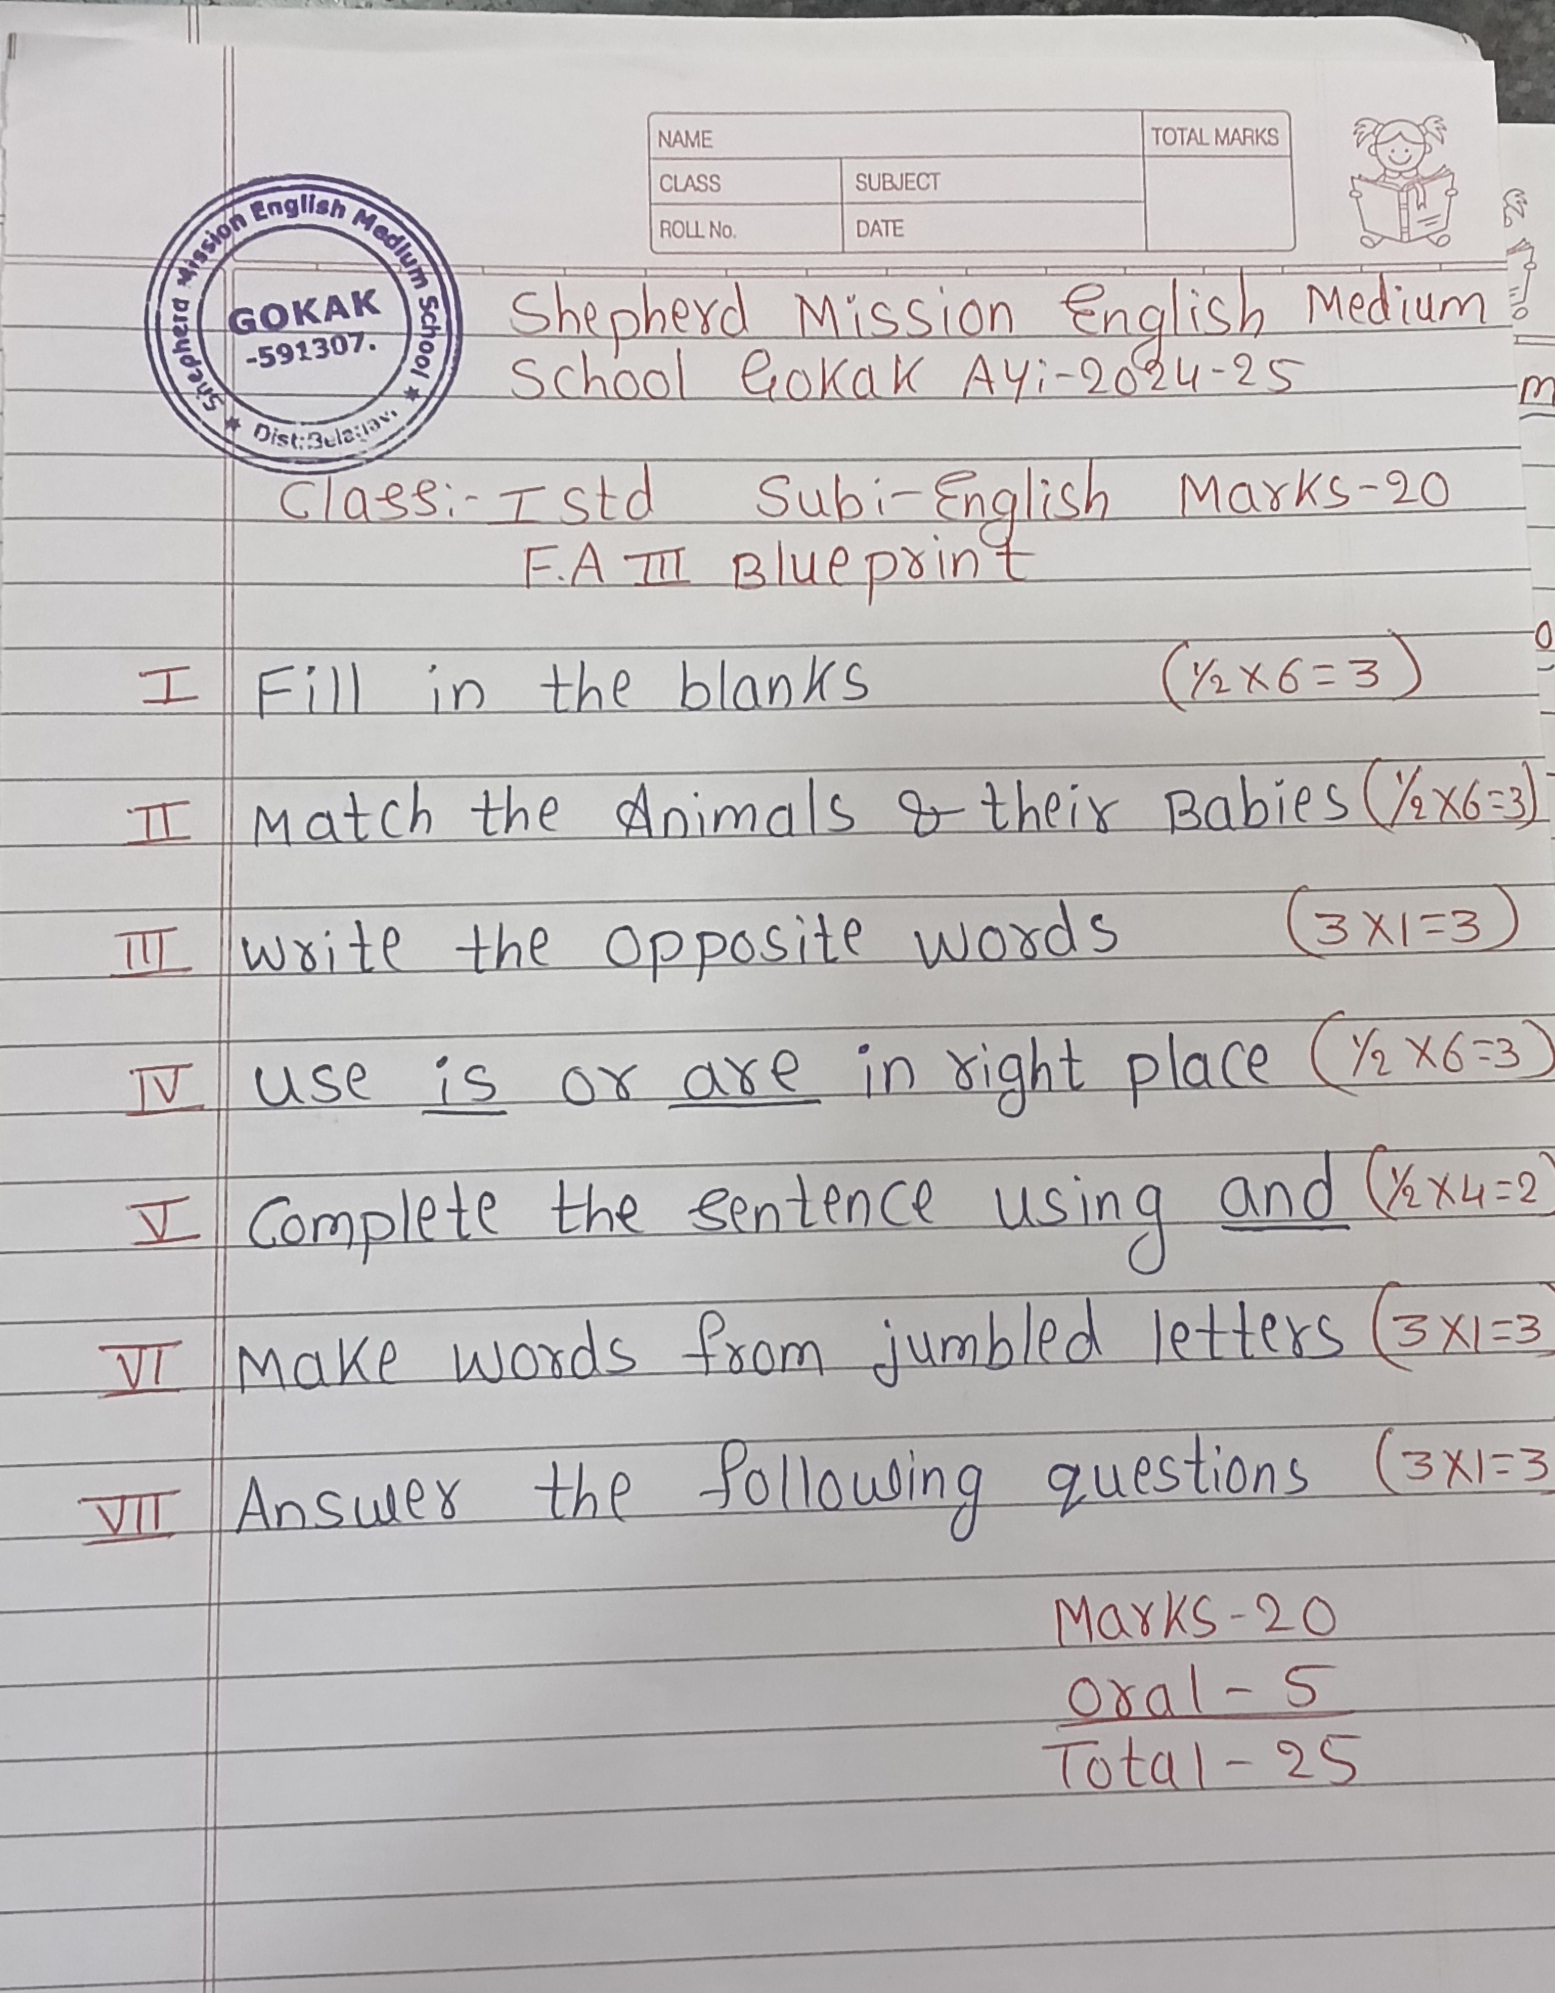 NAME
TOTAL MARKS
CLASS
SUBJECT
ROLL No.
DATE
Shepherd Mission English Medium School
GOKAK
-591307.
Dist:Belagavi
Shepherd Mission English Medium
School Gokak AY:-2024-25
Class:- I std Sub:- English Marks-20
F.A III Blueprint
I Fill in the blanks (1/2 X 6 = 3)
II Match the Animals & their Babies (1/2 X 6 = 3)
III Write the opposite words (3 X 1 = 3)
IV Use is or are in right place (1/2 X 6 = 3)
V Complete the sentence using and (1/2 X 4 = 2)
VI Make words from jumbled letters (3 X 1 = 3
VII Answer the following questions (3 X 1 = 3
Marks - 20
Oral - 5
Total - 25